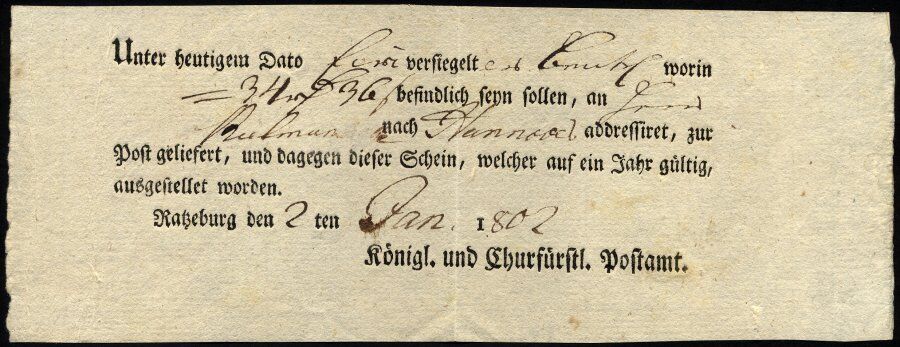 Unter heutigem Dato Ein versiegelt er Beutel worin
= 34 rß 36 ß befindlich seyn sollen, an
nach Hannover addressiret, zur
Post geliefert, und dagegen dieser Schein, welcher auf ein Jahr gültig,
ausgestellet worden.
Ratzeburg den 2 ten Jan. 1802
Königl. und Churfürstl. Postamt.